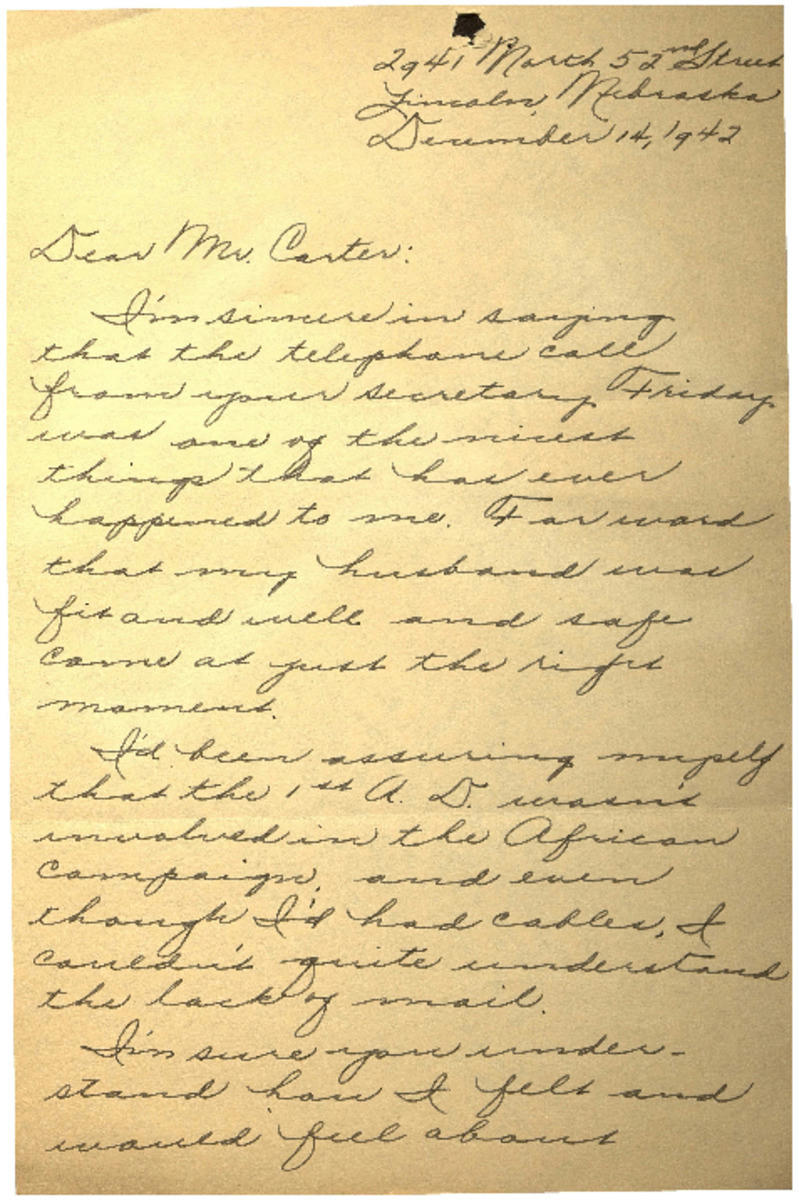 2941 North 52nd Street
Lincoln, Nebraska
December 14, 1942
Dear Mr. Carter:
I'm sincere in saying
that the telephone call
from your secretary Friday
was one of the nicest
things that has ever
happened to me. For word
that my husband was
fit and well and safe
came at just the right
moment.
I'd been assuring myself
that the 1st A. D. wasn't
involved in the African
campaign, and even
though I'd had cables, I
couldn't quite understand
the lack of mail.
I'm sure you under-
stand how I felt and
would feel about